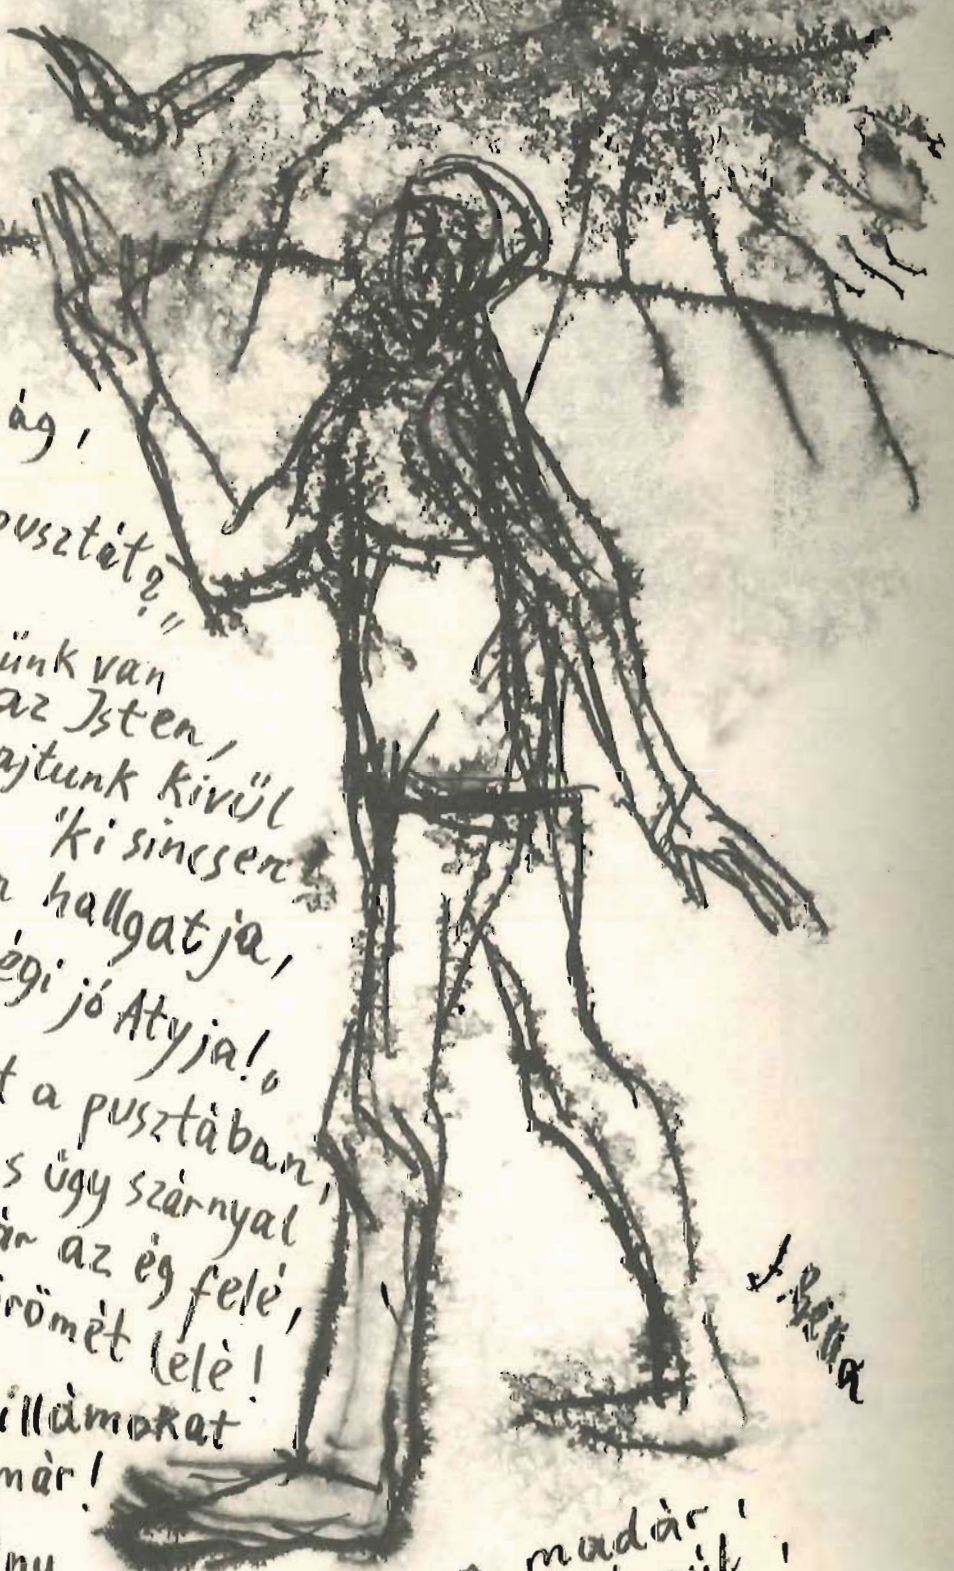 ág,
pusztát?"
ünk van
az Isten,
ajtunk kivül
ki sincsen!
hallgatja,
égi jó Atyja!"
t a pusztában,
s úgy szárnyal
ár az ég felé,
römét lelé!
illámokat
már!
ny
madár,